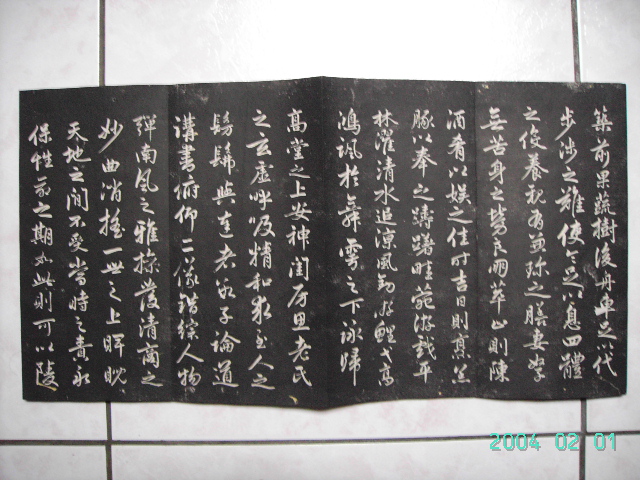 築前果蔬樹後舟車足代
步涉之難使令足以息四體
之役養親有兼珍之膳妻孥
無苦身之勞良朋萃止則陳
酒肴以娛之佳時吉日則烹羔
豚以奉之躊躇畦菀游戲平
林濯清水追涼風釣游鯉弋高
鴻諷於舞雩之下詠歸
高堂之上安神閨房思老氏
之玄虛呼吸精和求至人之
髣髴與達者數子論道
講書俯仰二儀錯綜人物
彈南風之雅操發清商之
妙曲消搖一世之上睥睨
天地之間不受當時之責永
保性命之期如此則可以陵
2004 02 01